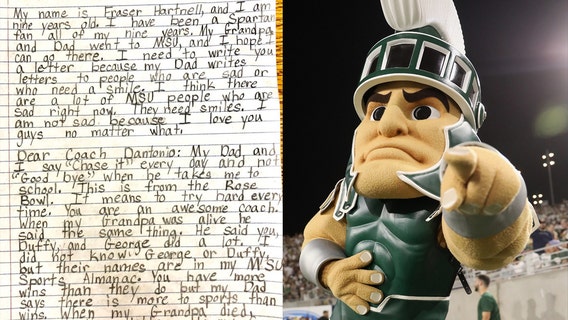 My name is Fraser Hartnell, and I am
nine years old. I have been a Spartan
fan all of my nine years. My Grandpa
and Dad went to MSU, and I hope I
can go there. I need to write you
a letter because my Dad writes
letters to people who are sad or
who need a smile. I think there
are a lot of MSU people who are
sad right now. They need smiles. I
am not sad because I love you
guys no matter what.
Dear Coach Dantonio: My Dad and
I say "chase it" every day and not
"Good bye" when he takes me to
school. This is from the Rose
Bowl. It means to try hard every
time. You are an awesome coach.
When my Grandpa was alive he
said the same thing. He said you,
Duffy, and George did a lot. I
did not know George or Duffy,
but their names are in my MSU
Sports Almanac. You have more
wins than they do but my Dad
says there is more to sports than
wins. When my Grandpa died,